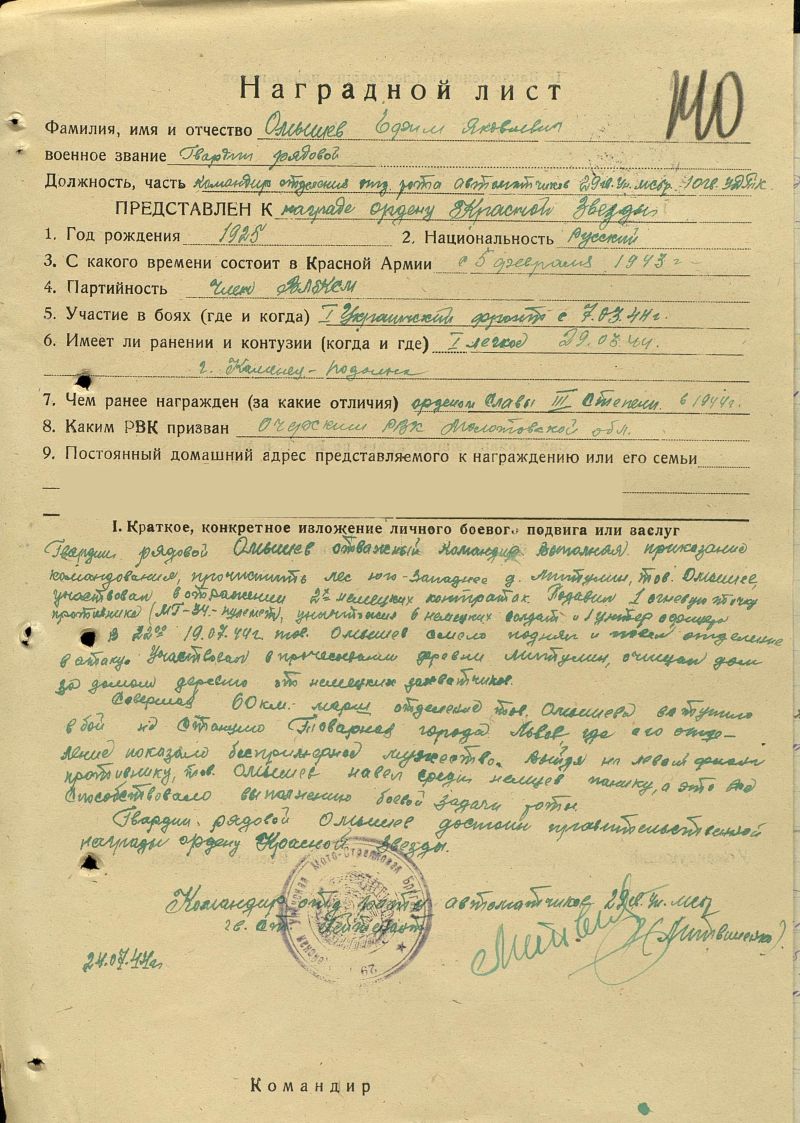 140
Наградной лист
Фамилия, имя и отчество Омышев Ефим Яковлевич
военное звание Гвардии рядовой
Должность, часть командир отделения отд. рота автоматчиков 29 гв. Ун. мсбр. 10 гв. УДТК
ПРЕДСТАВЛЕН К награде ордену "Красной Звезды"
1. Год рождения 1925 2. Национальность Русский
3. С какого времени состоит в Красной Армии с 5 февраля 1943 г
4. Партийность член ВЛКСМ
5. Участие в боях (где и когда) I Украинский фронт с 7.03.44 г.
6. Имеет ли ранении и контузии (когда и где) I легкое 29.03.44.
г. Каменец-Подольск
7. Чем ранее награжден (за какие отличия) орденом Славы III Степени. в 1944 г.
8. Каким РВК призван Очерским РВК Молотовской обл.
9. Постоянный домашний адрес представляемого к награждению или его семьи
I. Краткое, конкретное изложение личного боевого подвига или заслуг
Гвардии рядовой Омышев отважный командир выполняя приказание
командования, прочистить лес юго-Западнее д. тов. Омышев
участвовал в отражении 2х немецких контратак. Подавил 1 огневую точку
противника (МГ-34-пулемет), уничтожил 6 немецких солдат и 1 унтер офицера
В 22:00 19.07.44 г. тов. Омышев смело поднял и повел отделение
в атаку. Участвовал в прочесывании деревни очищая дом
за домом деревню от немецких захватчиков.
Совершая 60 км. марш отделение тов. Омышева вступило
в бой на Станцию Товарная города Львов где его отде-
ление показало беспримерное мужество. Выйдя на левый фланг
противнику, тов. Омышев навел среди немцев панику, а это
способствовало выполнению боевой задачи роты.
Гвардии рядовой Омышев достоин правительственной
награды ордену "Красной Звезды.
Командир отд роты автоматчиков 29 гв. Ун. мсбр
гв. ст. Лейтенант (Литвиненко)
24.07.44 г
Унечская Мото-Стрелковая Бригада 29
Командир